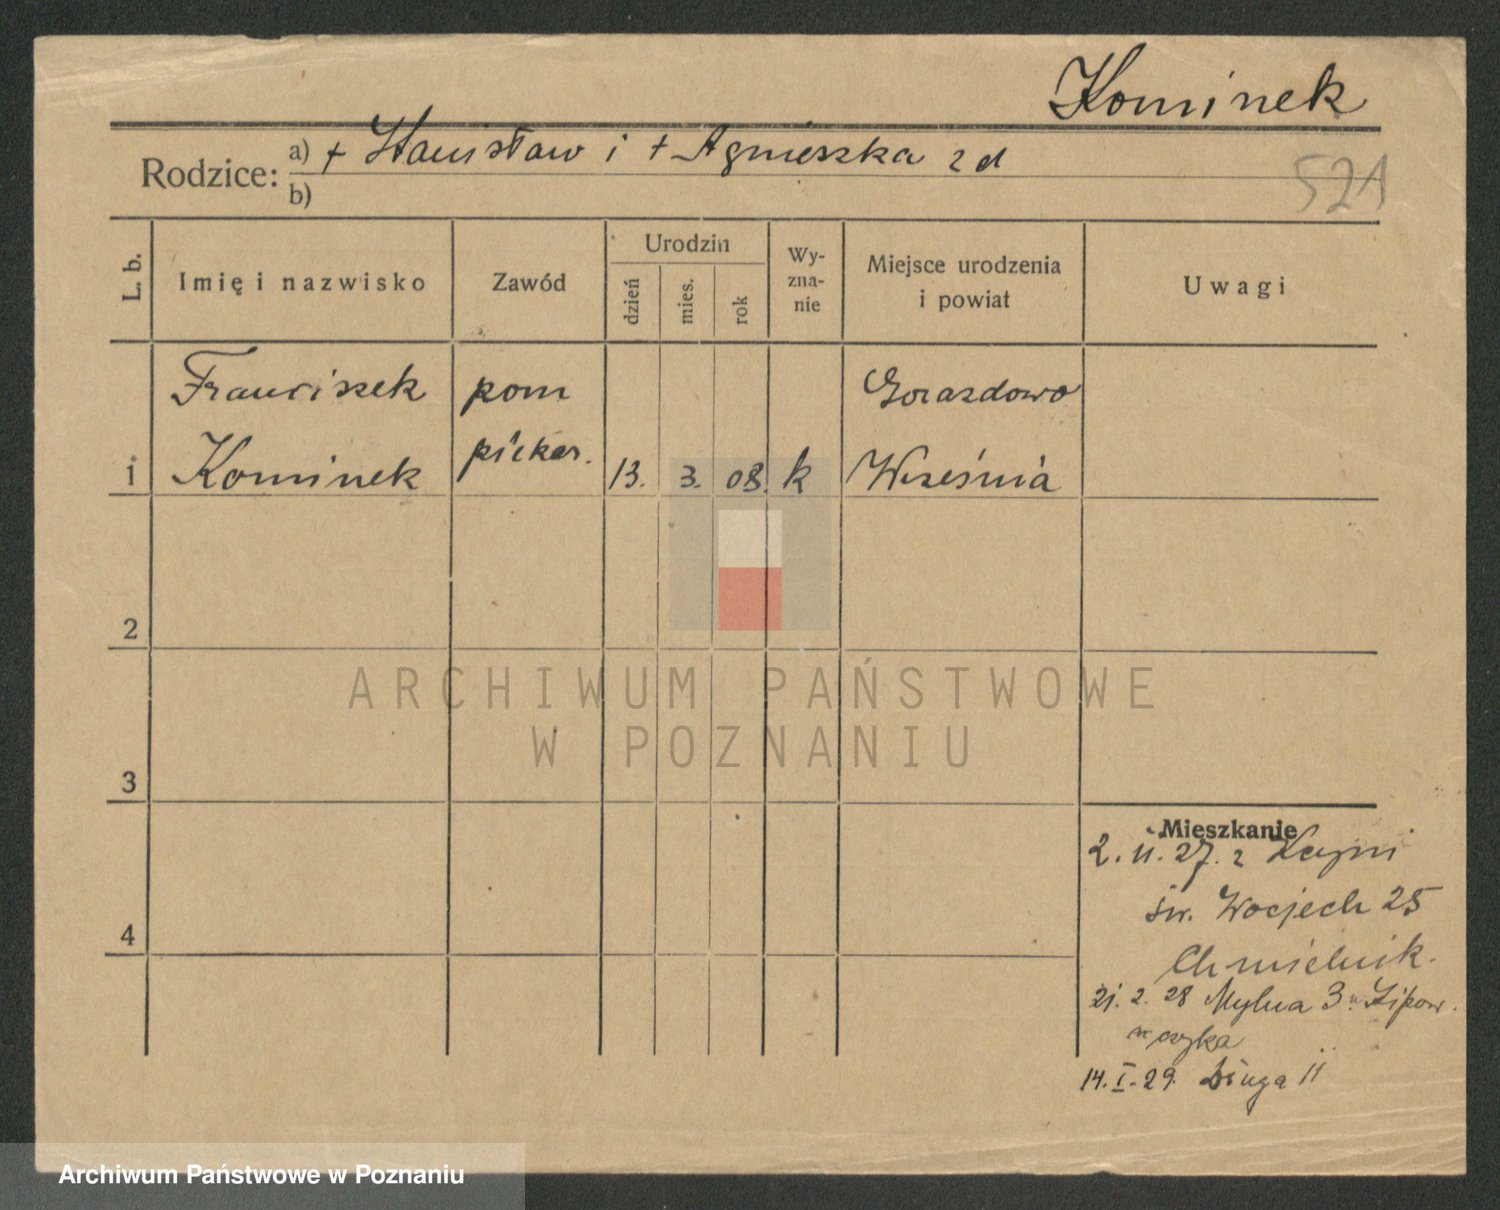 Kominek
Rodzice: a) + Stanisław i + Agnieszka z d
b)
521
L. b.
Imię i nazwisko
Zawód
Urodzin
dzień
mies.
rok
Wy-
zna-
nie
Miejsce urodzenia
i powiat
Uwagi
Franciszek
pom
Gorazdowo
1
Kominek
piekar.
13.
3.
08.
k
Września
2
ARCHIWUM PAŃSTWOWE
W POZNANIU
3
Mieszkanie
2. 11. 27. z
św. Wocjech 25
Chmielnik.
21. 2. 28 Mylna 3
14. I. 29. Długa 11
4
Archiwum Państwowe w Poznaniu